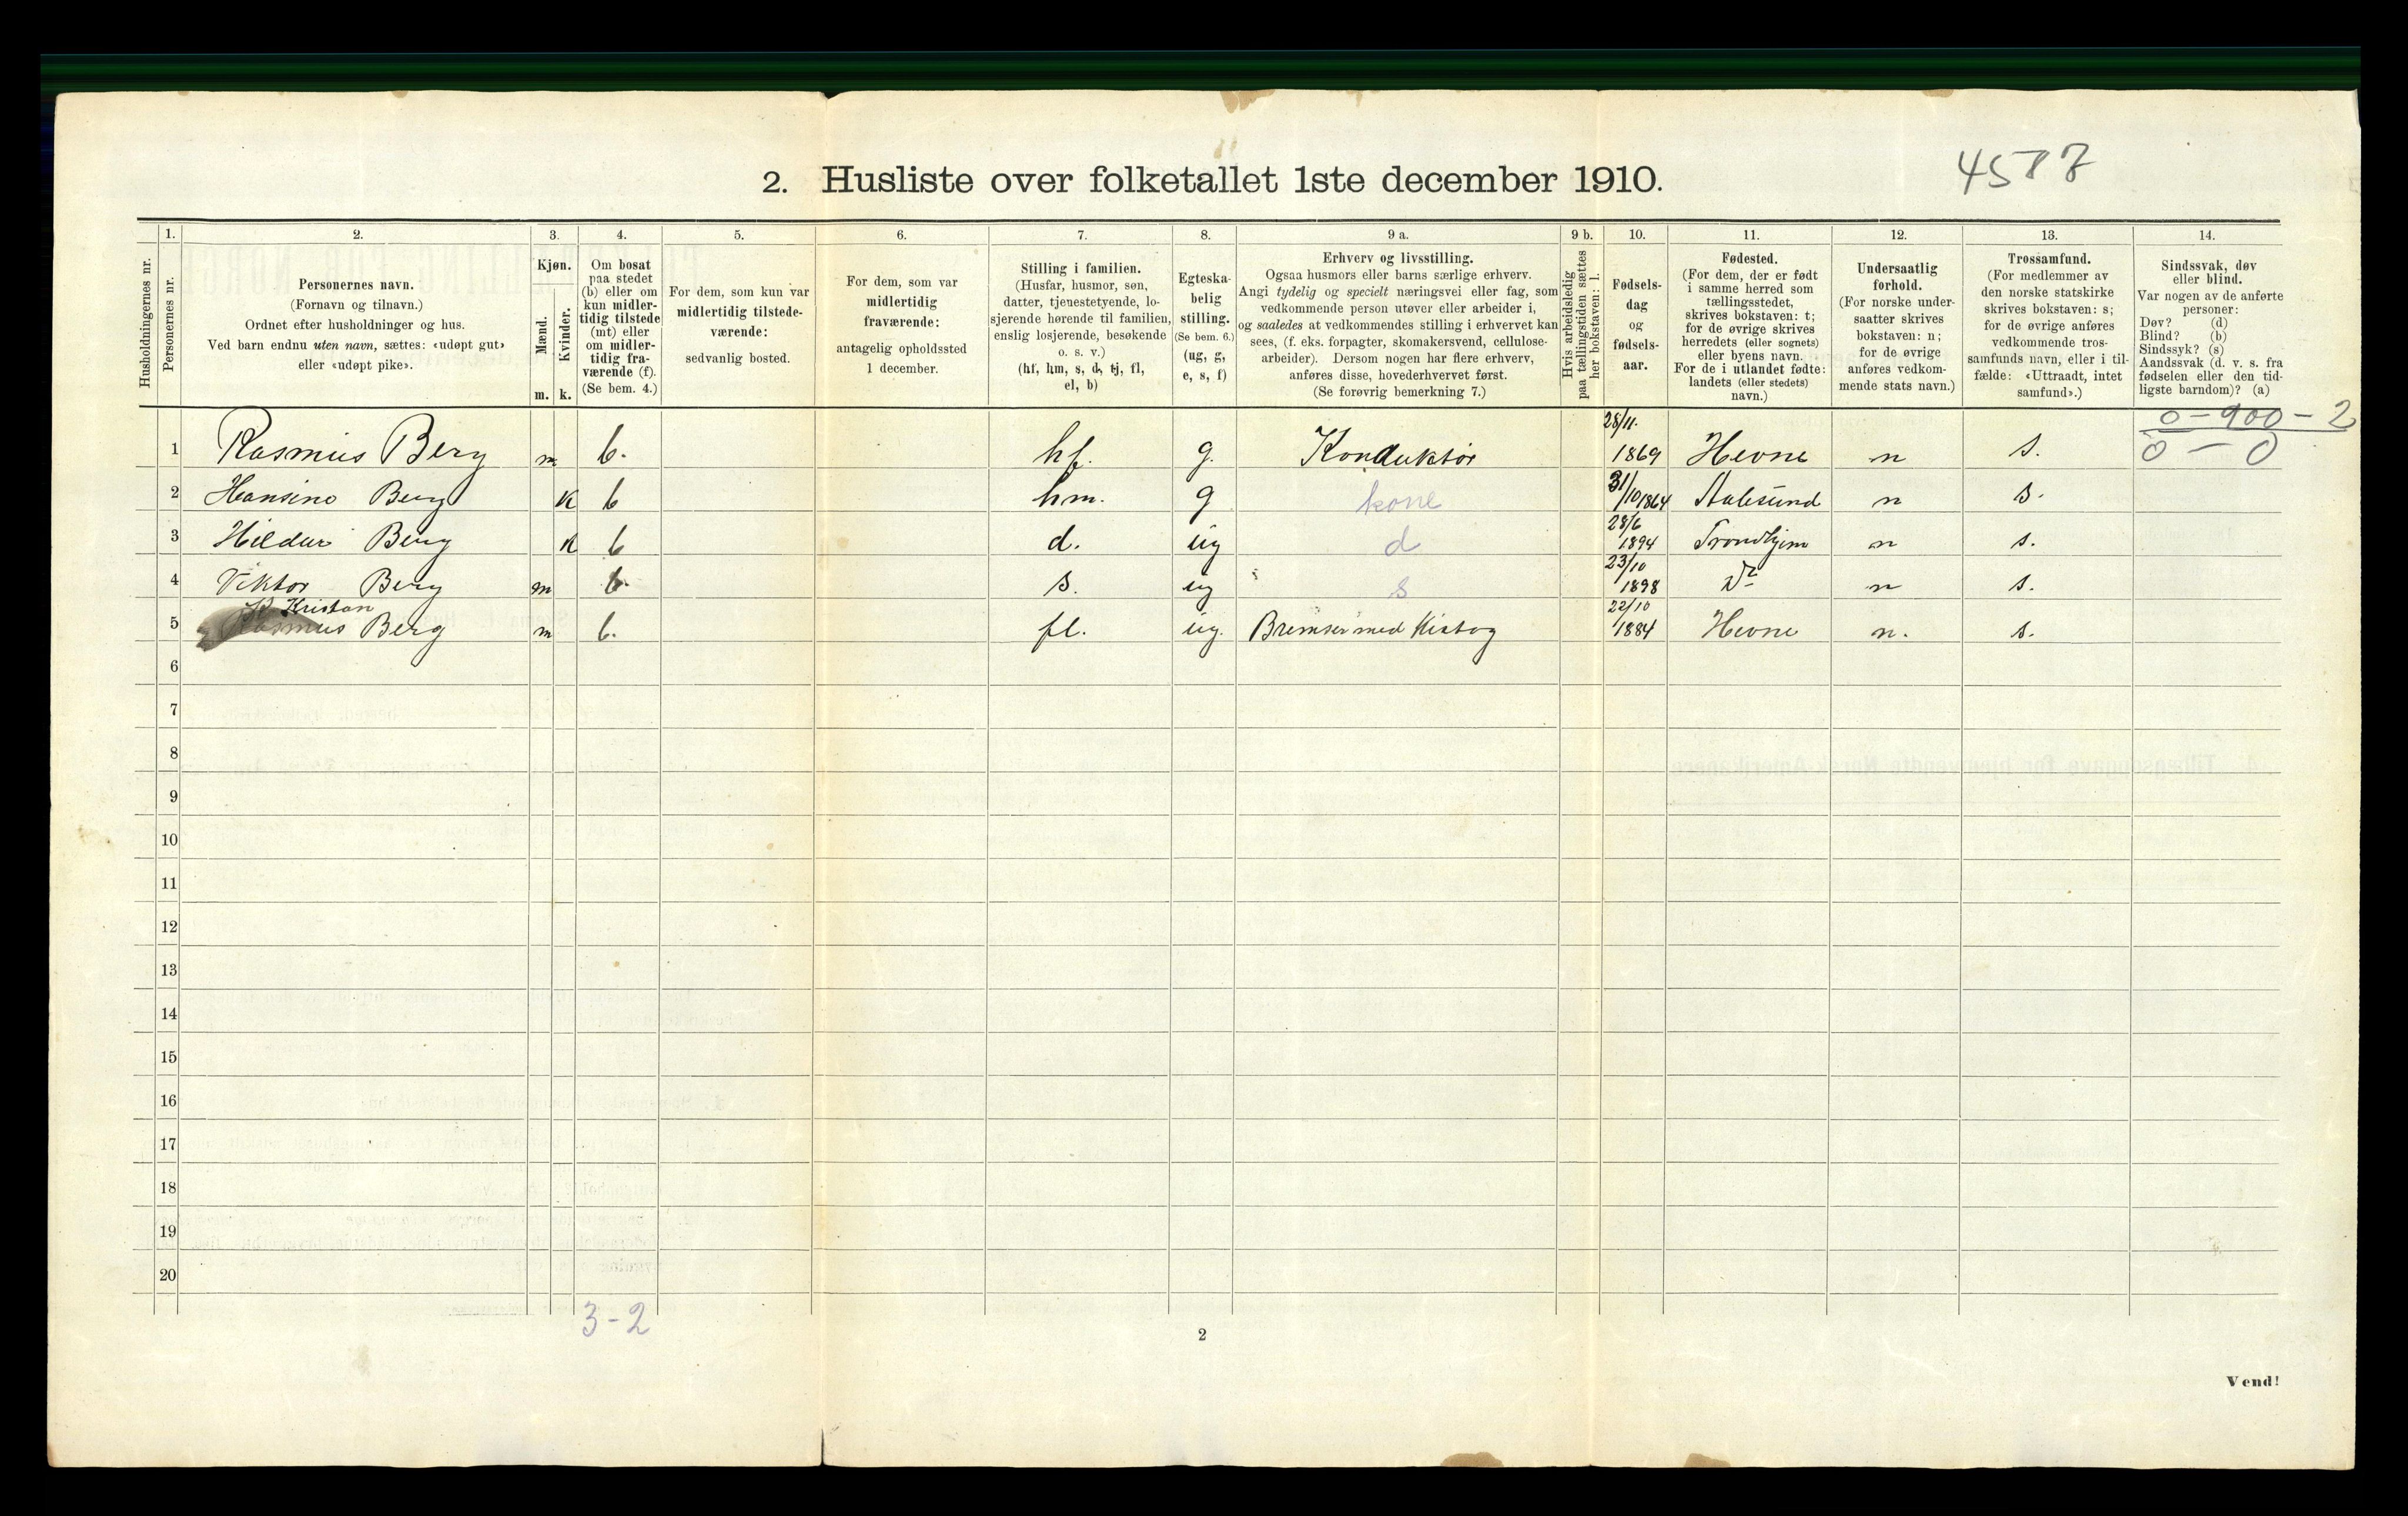 4587
2. Husliste over folketallet 1ste december 1910.
Husholdningernes nr.
1.
Personernes nr.
2.
Personernes navn.
(Fornavn og tilnavn.)
Ordnet efter husholdninger og hus.
Ved barn endnu uten navn, sættes: «udøpt gut»
eller «udøpt pike».
3.
Kjøn.
Mænd.
Kvinder.
m. k.
4.
Om bosat
paa stedet
(b) eller om
kun midler-
tidig tilstede
(mt) eller
om midler-
tidig fra-
værende (f).
(Se bem. 4.)
5.
For dem, som kun var
midlertidig tilstede-
værende:
sedvanlig bosted.
6.
For dem, som var
midlertidig
fraværende:
antagelig opholdssted
1 december.
7.
Stilling i familien.
(Husfar, husmor, søn,
datter, tjenestetyende, lo-
sjerende hørende til familien,
enslig losjerende, besøkende
o. s. v.)
(hf, hm, s, d, tj, fl,
el, b)
8.
Egteska-
belig
stilling.
(Se bem. 6.)
(ug, g,
e, s, f)
9 a.
Erhverv og livsstilling.
Ogsaa husmors eller barns særlige erhverv.
Angi tydelig og specielt næringsvei eller fag, som
vedkommende person utøver eller arbeider i,
og saaledes at vedkommendes stilling i erhvervet kan
sees, (f. eks. forpagter, skomakersvend, cellulose-
arbeider). Dersom nogen har flere erhverv,
anføres disse, hovederhvervet først.
(Se forøvrig bemerkning 7.)
9 b.
Hvis arbeidsledig
paa tællingstiden sættes
her bokstaven: l.
10.
Fødsels-
dag
og
fødsels-
aar.
11.
Fødested.
(For dem, der er født
i samme herred som
tællingsstedet,
skrives bokstaven: t;
for de øvrige skrives
herredets (eller sognets)
eller byens navn.
For de i utlandet fødte:
landets (eller stedets)
navn.)
12.
Undersaatlig
forhold.
(For norske under-
saatter skrives
bokstaven: n;
for de øvrige
anføres vedkom-
mende stats navn.)
13.
Trossamfund.
(For medlemmer av
den norske statskirke
skrives bokstaven: s;
for de øvrige anføres
vedkommende tros-
samfunds navn, eller i til-
fælde: «Uttraadt, intet
samfund».)
14.
Sindssvak, døv
eller blind.
Var nogen av de anførte
personer:
Døv? (d)
Blind? (b)
Sindssyk? (s)
Aandssvak (d. v. s. fra
fødselen eller den tid-
ligste barndom)? (a)
0 - 900 - 2
0 - 0
1 Rasmus Berg m b. hf. g. Konduktør 28/11. 1869 Hevne n s.
2 Hansine Berg k b hm. g kone 31/10 1864 Aalesund n s.
3 Hildur Berg k b d. ug d 28/6 1894 Trondhjem n s.
4 Viktor Berg m b. s. ug s 23/10 1898 Do n s.
Kristan
5 Rasmus Berg m b. fl. ug. Bremser med Kistog 22/10 1884 Hevne n. s.
6
7
8
9
10
11
12
13
14
15
16
17
18
19
20
3-2
2
Vend!